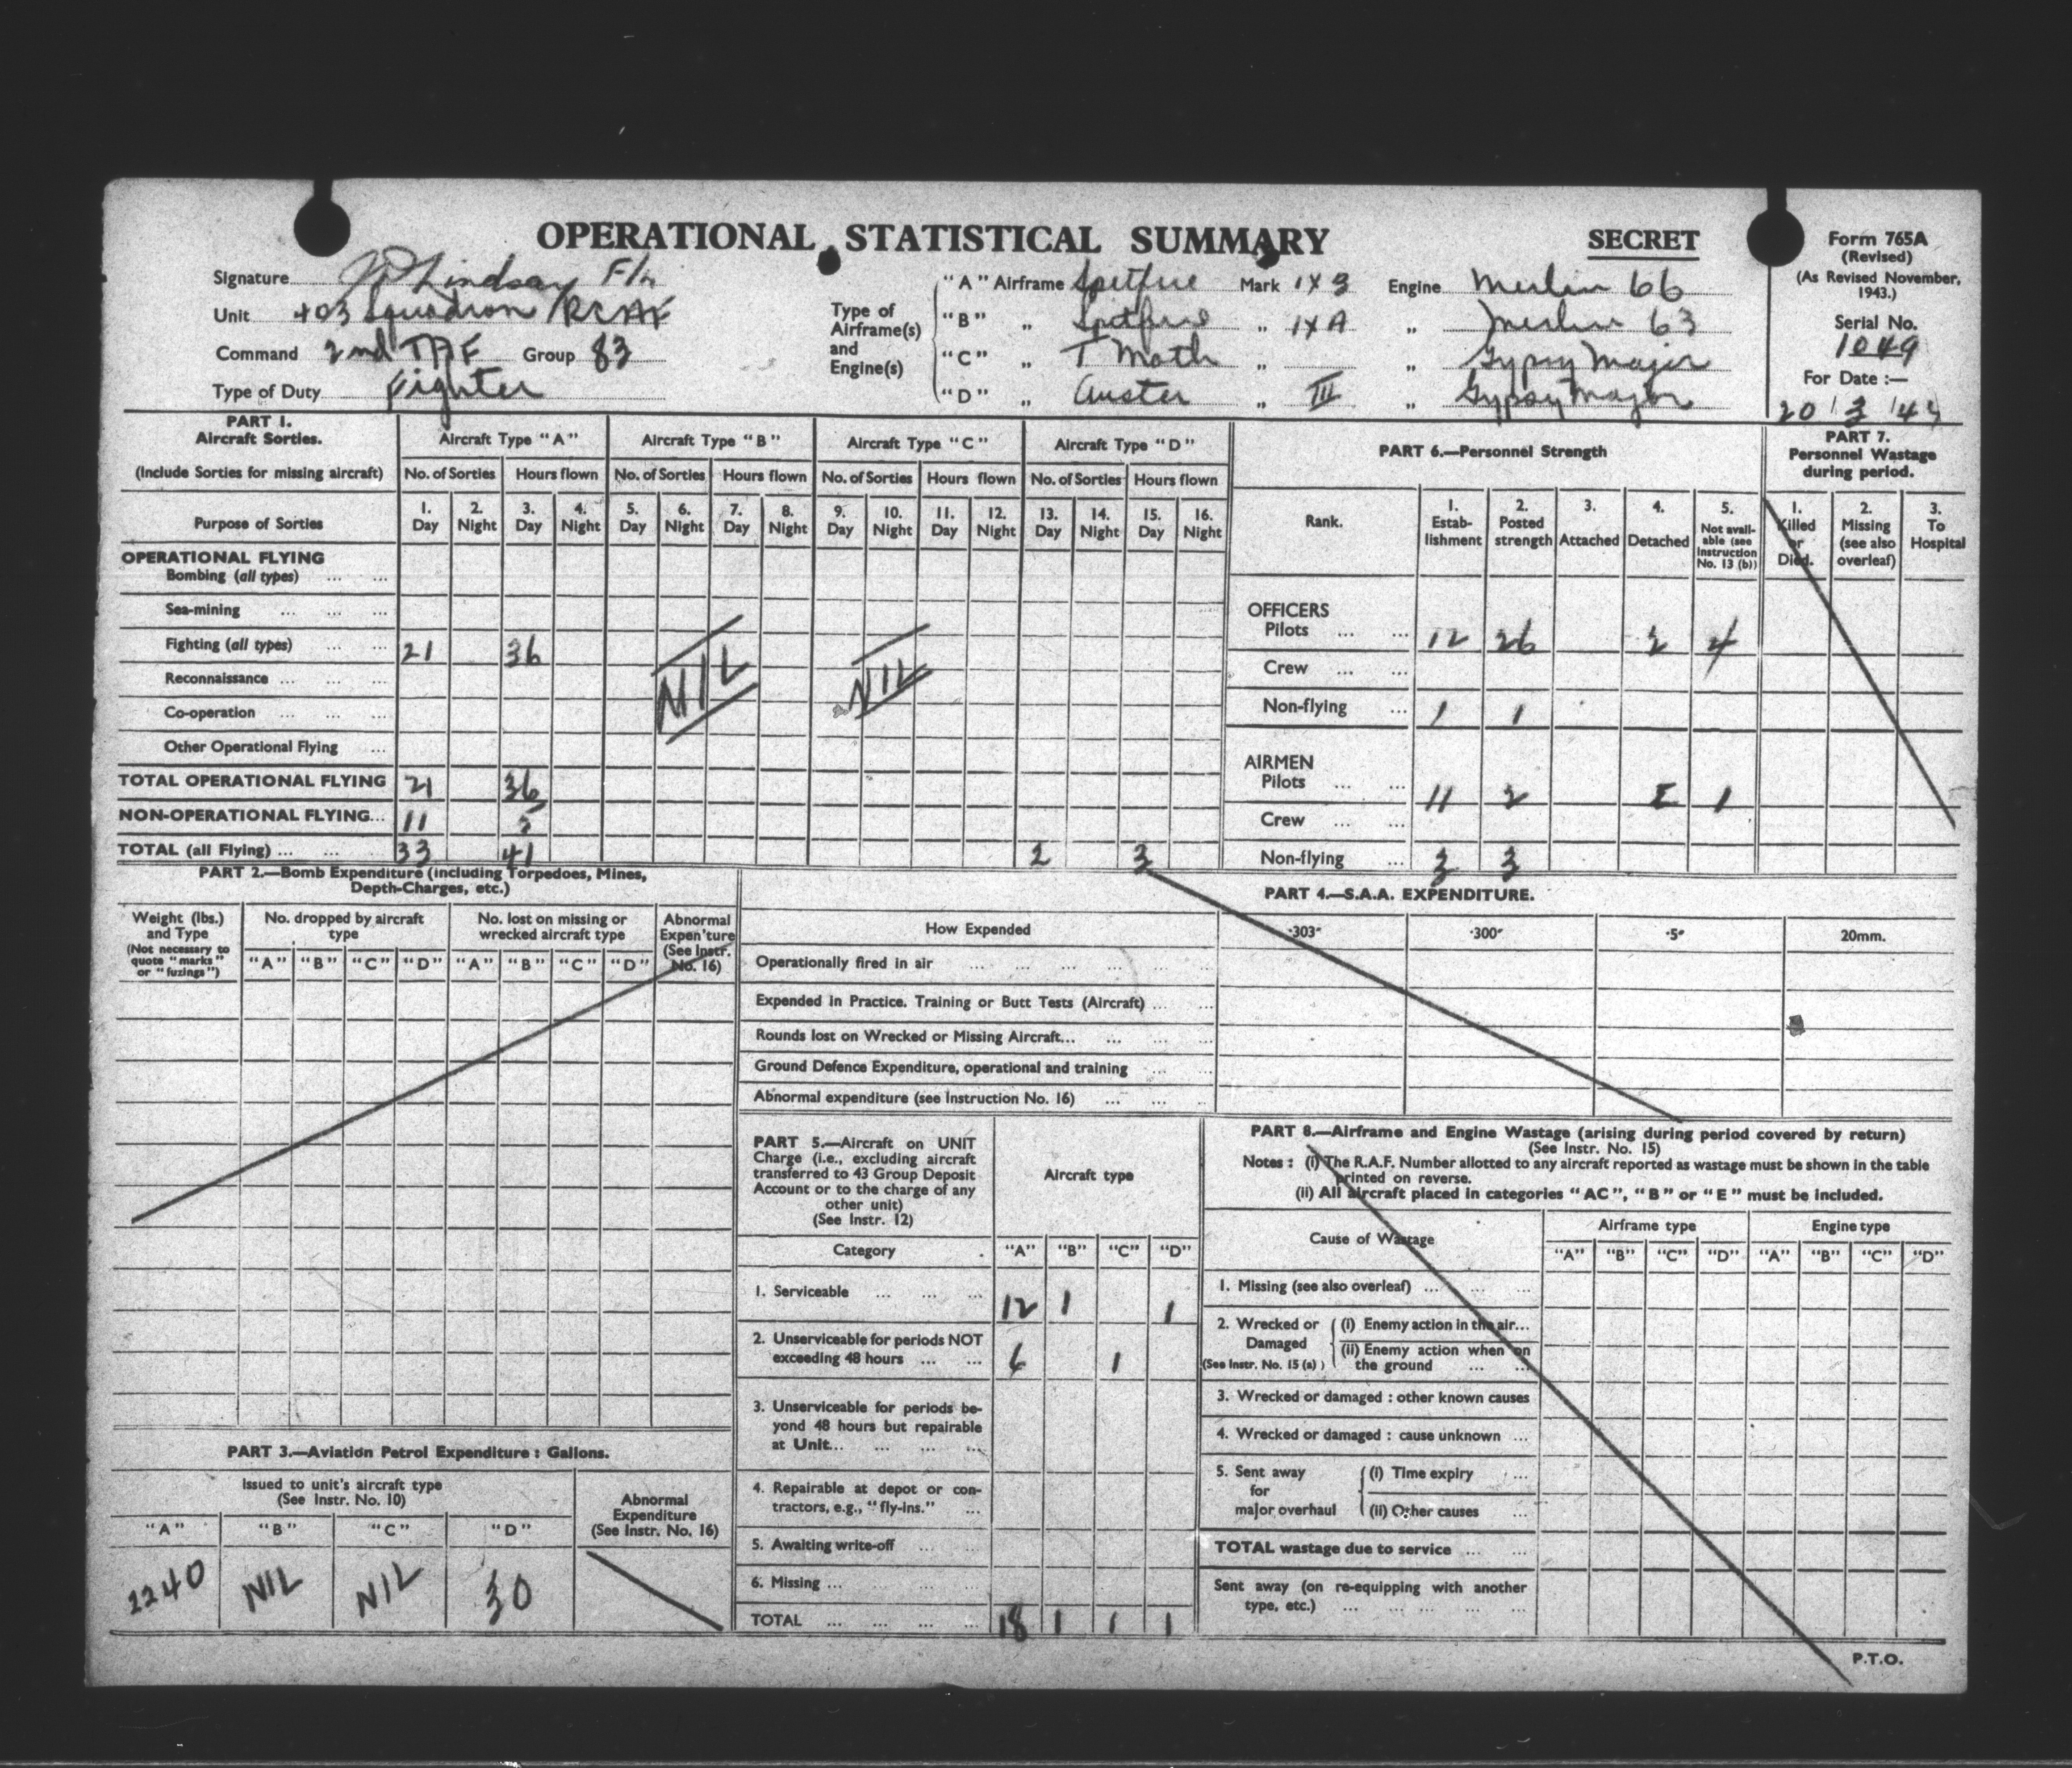 OPERATIONAL STATISTICAL SUMMARY
SECRET
Form 765A
(Revised)
(As Revised November, 1943.)
Serial No.
1049
For Date :—
20 3 44
Signature Lindsay F/Lt
Unit 403 Squadron RCAF
Command 2nd TAF Group 83
Type of Duty Fighter
Type of Airframe(s) and Engine(s)
"A" Airframe Spitfire Mark IX B Engine Merlin 66
"B" „ Spitfire „ IX A „ Merlin 63
"C" „ T Moth „ „ Gypsy Major
"D" „ Auster „ III „ Gypsy Major
PART 1.
Aircraft Sorties.
(Include Sorties for missing aircraft)
Purpose of Sorties
Aircraft Type "A" Aircraft Type "B" Aircraft Type "C" Aircraft Type "D"
No. of Sorties Hours flown No. of Sorties Hours flown No. of Sorties Hours flown No. of Sorties Hours flown
1. Day 2. Night 3. Day 4. Night 5. Day 6. Night 7. Day 8. Night 9. Day 10. Night 11. Day 12. Night 13. Day 14. Night 15. Day 16. Night
OPERATIONAL FLYING
Bombing (all types) ... ...
Sea-mining ... ... ...
Fighting (all types) ... ... 21 36
Reconnaissance ... ... ...
NIL NIL
Co-operation ... ... ...
Other Operational Flying ...
TOTAL OPERATIONAL FLYING 21 36
NON-OPERATIONAL FLYING... 11 5
TOTAL (all Flying) ... ... ... 33 41 2 3
PART 6.—Personnel Strength
Rank.
1. Establishment
2. Posted strength
3. Attached
4. Detached
5. Not available (see Instruction No. 13 (b))
OFFICERS
Pilots ... ... 12 26 2 4
Crew ... ...
Non-flying ... 1 1
AIRMEN
Pilots ... ... 11 2 1
Crew ... ...
Non-flying ... 3 3
PART 7.
Personnel Wastage during period.
1. Killed or Died.
2. Missing (see also overleaf)
3. To Hospital
PART 2.—Bomb Expenditure (including Torpedoes, Mines,
Depth-Charges, etc.)
Weight (lbs.) and Type
(Not necessary to quote "marks" or "fuzings")
No. dropped by aircraft type
No. lost on missing or wrecked aircraft type
Abnormal Expen'ture (See Instr. No. 16)
"A" "B" "C" "D" "A" "B" "C" "D"
PART 4.—S.A.A. EXPENDITURE.
How Expended ·303" ·300" ·5" 20mm.
Operationally fired in air ... ... ... ... ... ...
Expended in Practice, Training or Butt Tests (Aircraft) ... ...
Rounds lost on Wrecked or Missing Aircraft... ... ... ...
Ground Defence Expenditure, operational and training ... ...
Abnormal expenditure (see Instruction No. 16) ... ... ...
PART 3.—Aviation Petrol Expenditure : Gallons.
Issued to unit's aircraft type
(See Instr. No. 10)
Abnormal Expenditure (See Instr. No. 16)
"A" "B" "C" "D"
2240 NIL NIL 30
PART 5.—Aircraft on UNIT
Charge (i.e., excluding aircraft
transferred to 43 Group Deposit
Account or to the charge of any
other unit)
(See Instr. 12)
Aircraft type
Category "A" "B" "C" "D"
1. Serviceable ... ... ... 12 1 1
2. Unserviceable for periods NOT
exceeding 48 hours ... ... 6 1
3. Unserviceable for periods be-
yond 48 hours but repairable
at Unit... ... ... ...
4. Repairable at depot or con-
tractors, e.g., "fly-ins." ...
5. Awaiting write-off ... ...
6. Missing ... ... ... ...
TOTAL ... ... ... ... 18 1 1 1
PART 8.—Airframe and Engine Wastage (arising during period covered by return)
(See Instr. No. 15)
Notes : (i) The R.A.F. Number allotted to any aircraft reported as wastage must be shown in the table
printed on reverse.
(ii) All aircraft placed in categories "AC", "B" or "E" must be included.
Cause of Wastage Airframe type Engine type
"A" "B" "C" "D" "A" "B" "C" "D"
1. Missing (see also overleaf) ... ... ...
2. Wrecked or Damaged (See Instr. No. 15 (a) )
(i) Enemy action in the air...
(ii) Enemy action when on
the ground ... ...
3. Wrecked or damaged : other known causes
4. Wrecked or damaged : cause unknown ...
5. Sent away for major overhaul
(i) Time expiry ...
(ii) Other causes ...
TOTAL wastage due to service ... ...
Sent away (on re-equipping with another
type, etc.) ... ... ... ... ...
P.T.O.